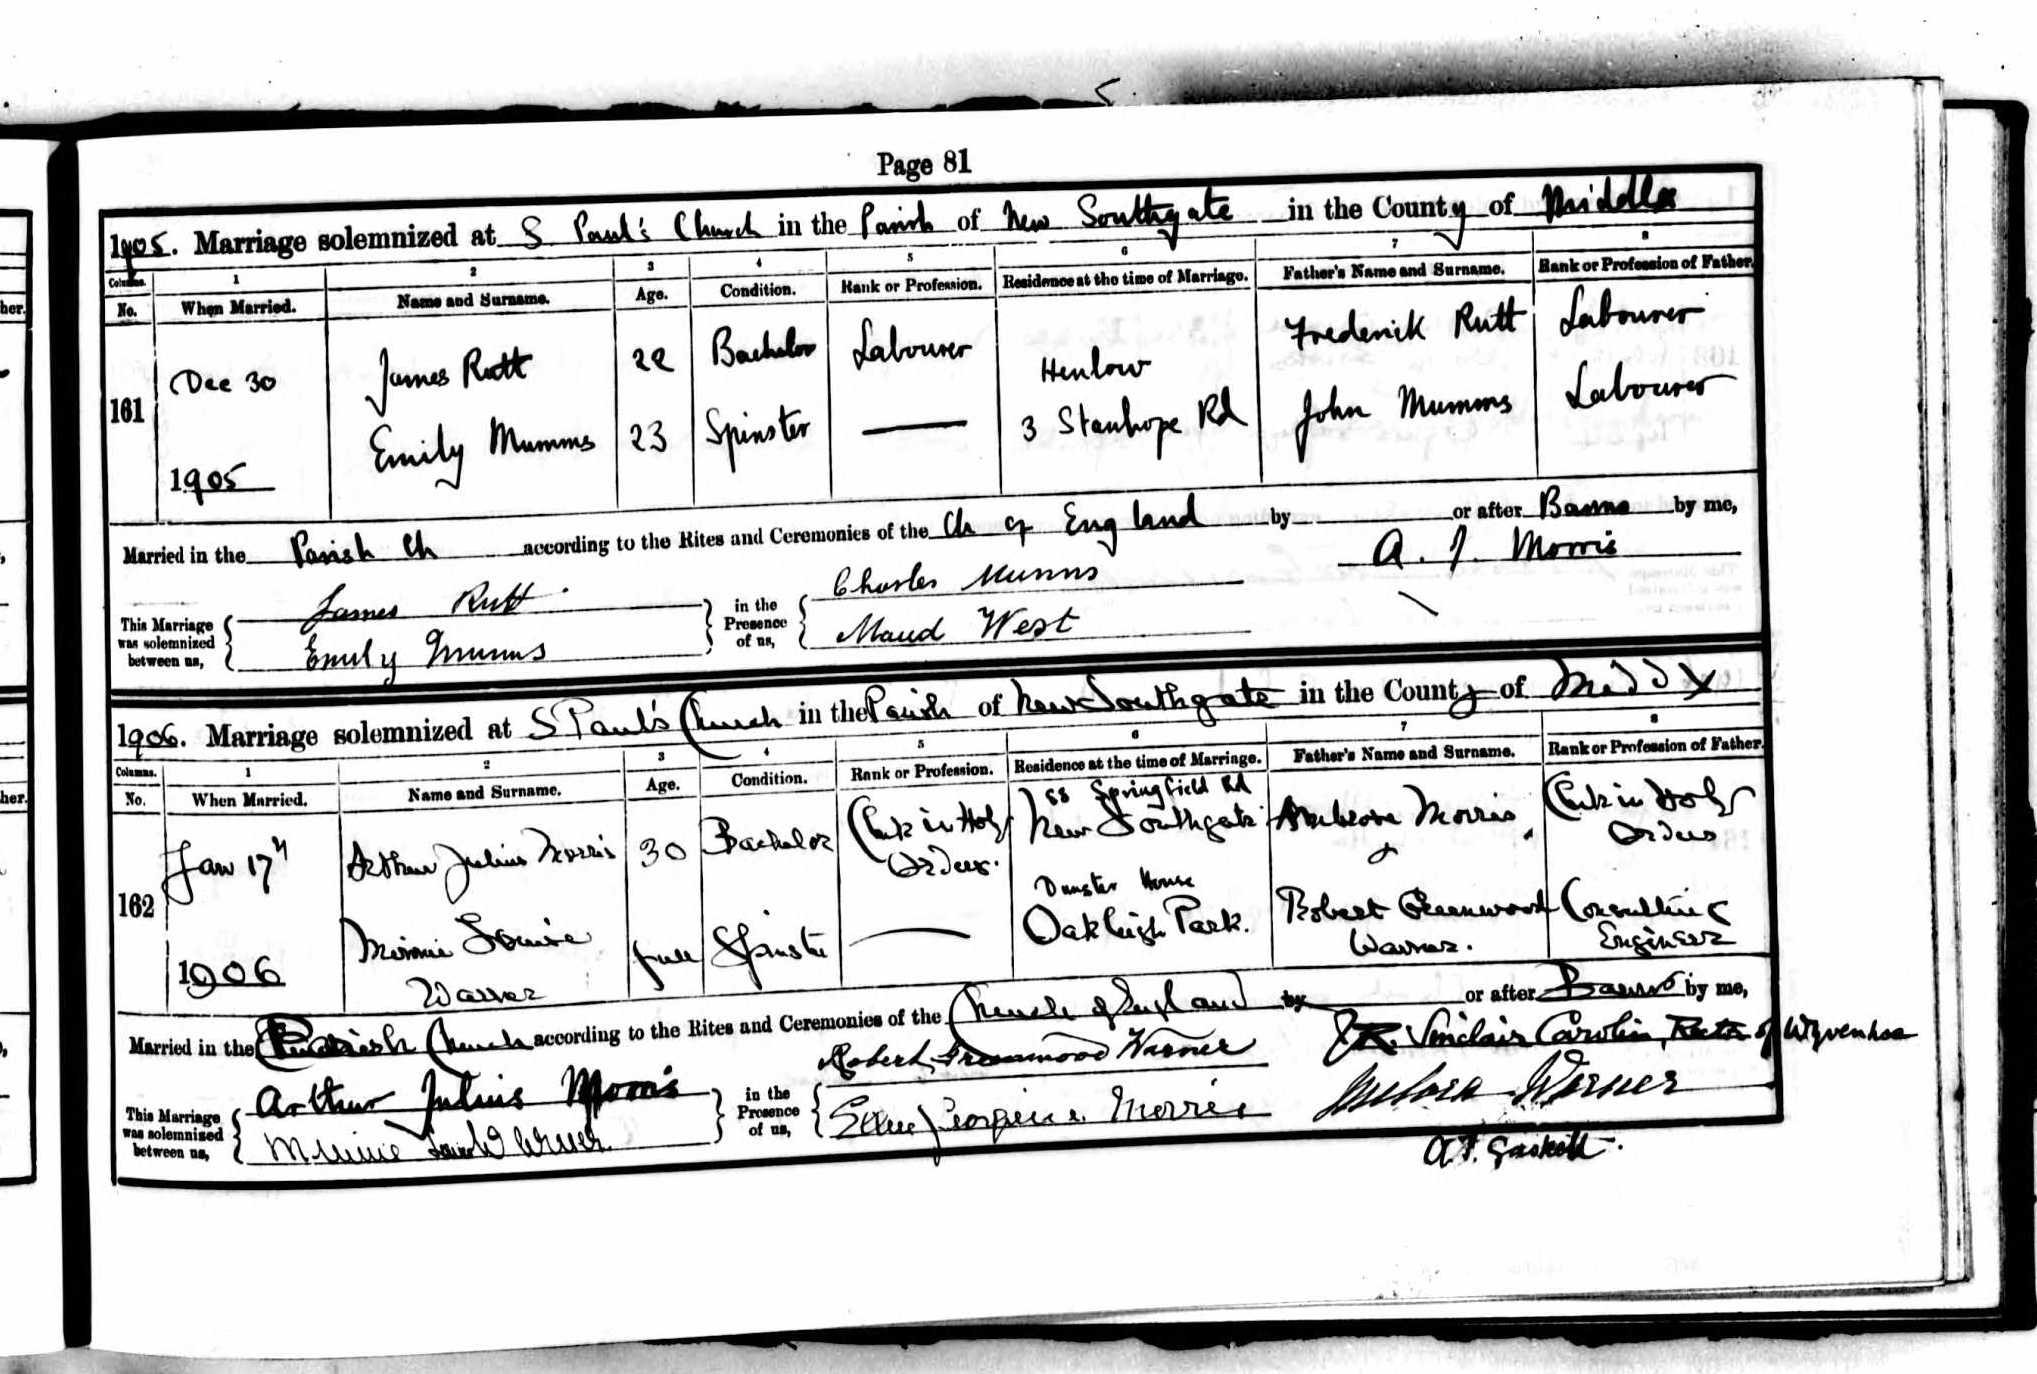 Page 81
1905. Marriage solemnized at S Paul's Church in the Parish of New Southgate in the County of Middlx
Columns. 1 2 3 4 5 6 7 8
No. When Married. Name and Surname. Age. Condition. Rank or Profession. Residence at the time of Marriage. Father's Name and Surname. Rank or Profession of Father.
161 Dec 30 James Rutt 22 Bachelor Labourer Henlow Frederick Rutt Labourer
1905 Emily Mumms 23 Spinster — 3 Stanhope Rd John Mumms Labourer
Married in the Parish Ch according to the Rites and Ceremonies of the Ch of England by or after Banns by me,
A. J. Morris
This Marriage was solemnized between us, James Rutt in the Presence of us, Charles Munns
Emily Munns Maud West
1906. Marriage solemnized at S Paul's Church in the Parish of New Southgate in the County of Middx
Columns. 1 2 3 4 5 6 7 8
No. When Married. Name and Surname. Age. Condition. Rank or Profession. Residence at the time of Marriage. Father's Name and Surname. Rank or Profession of Father.
162 Jan 17th Arthur Julius Morris 30 Bachelor Clerk in Holy Orders. 88 Springfield Rd New Southgate Ambrose Morris Clerk in Holy Orders
1906 Minnie Louise Warner full Spinster — Dunster House Oakleigh Park. Robert Greenwood Warner. Consulting Engineer
Married in the Parish Church according to the Rites and Ceremonies of the Church of England by or after Banns by me,
J. Sinclair Carolin, Rector of Wyvenhoe
This Marriage was solemnized between us, Arthur Julius Morris in the Presence of us, Robert Greenwood Warner
Minnie Louise Warner Georgina Morris Warner
A. F. Gaskell.